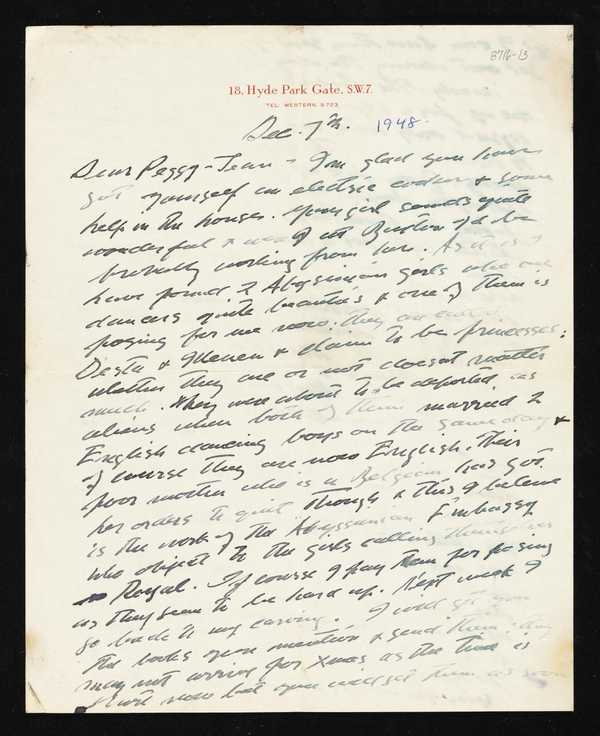 8716-13
18, Hyde Park Gate, S.W.7.
TEL: WESTERN 5723
Dec. 7th. 1948.
Dear Peggy-Jean - I'm glad you have
got yourself an electric cooker & some
help in the house. Your girl sounds quite
wonderful & at I'd be
probably working from her. As it is I
have found 2 Abyssinian girls who are
dancers quite beauties & one of them is
posing for me now. They are called
Desta & Menen & claim to be princesses:
whether they are or not doesn't matter
much. They were about to be deported as
aliens when both of them married 2
English dancing boys on the same day &
of course they are now English. Their
poor mother who is a Belgian has got
her orders to quit though & this I believe
is the work of the Abyssinian Embassy
who object to the girls calling themselves
Royal. Of course I pay them for posing
as they seem to be hard up. Next week I
go back to my carving. I will get you
the books you mention & send them: they
may not arrive for Xmas as the time is
short now but you will get them as soon